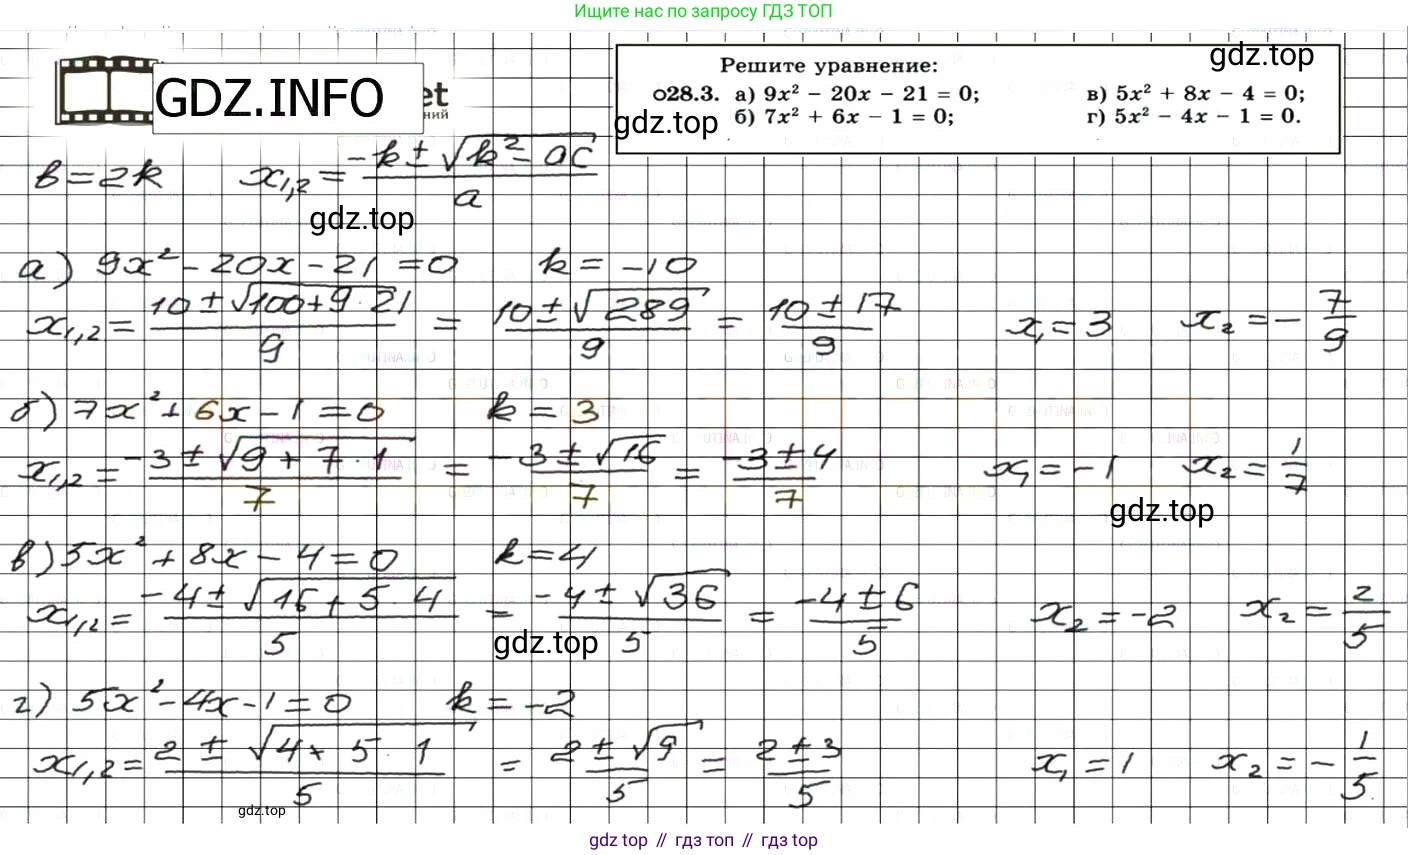 Ищите нас по запросу ГДЗ ТОП
GDZ.INFO
et
ний
gdz.top
Решите уравнение:
о28.3. а) 9x² − 20x − 21 = 0; в) 5x² + 8x − 4 = 0;
gdz.top
б) 7x² + 6x − 1 = 0; г) 5x² − 4x − 1 = 0.
в = 2k x₁,₂ = (−k ± √(k² − ac))/a
gdz.top
а) 9x² − 20x − 21 = 0 k = −10
x₁,₂ = (10 ± √(100 + 9 · 21))/9 = (10 ± √289)/9 = (10 ± 17)/9 x₁ = 3 x₂ = −7/9
б) 7x² + 6x − 1 = 0 k = 3
x₁,₂ = (−3 ± √(9 + 7 · 1))/7 = (−3 ± √16)/7 = (−3 ± 4)/7 x₁ = −1 x₂ = 1/7
gdz.top
в) 5x² + 8x − 4 = 0 k = 4
x₁,₂ = (−4 ± √(16 + 5 · 4))/5 = (−4 ± √36)/5 = (−4 ± 6)/5 x₂ = −2 x₂ = 2/5
gdz.top
г) 5x² − 4x − 1 = 0 k = −2
x₁,₂ = (2 ± √(4 + 5 · 1))/5 = (2 ± √9)/5 = (2 ± 3)/5 x₁ = 1 x₂ = −1/5
gdz.top
gdz top // гдз топ // гдз top